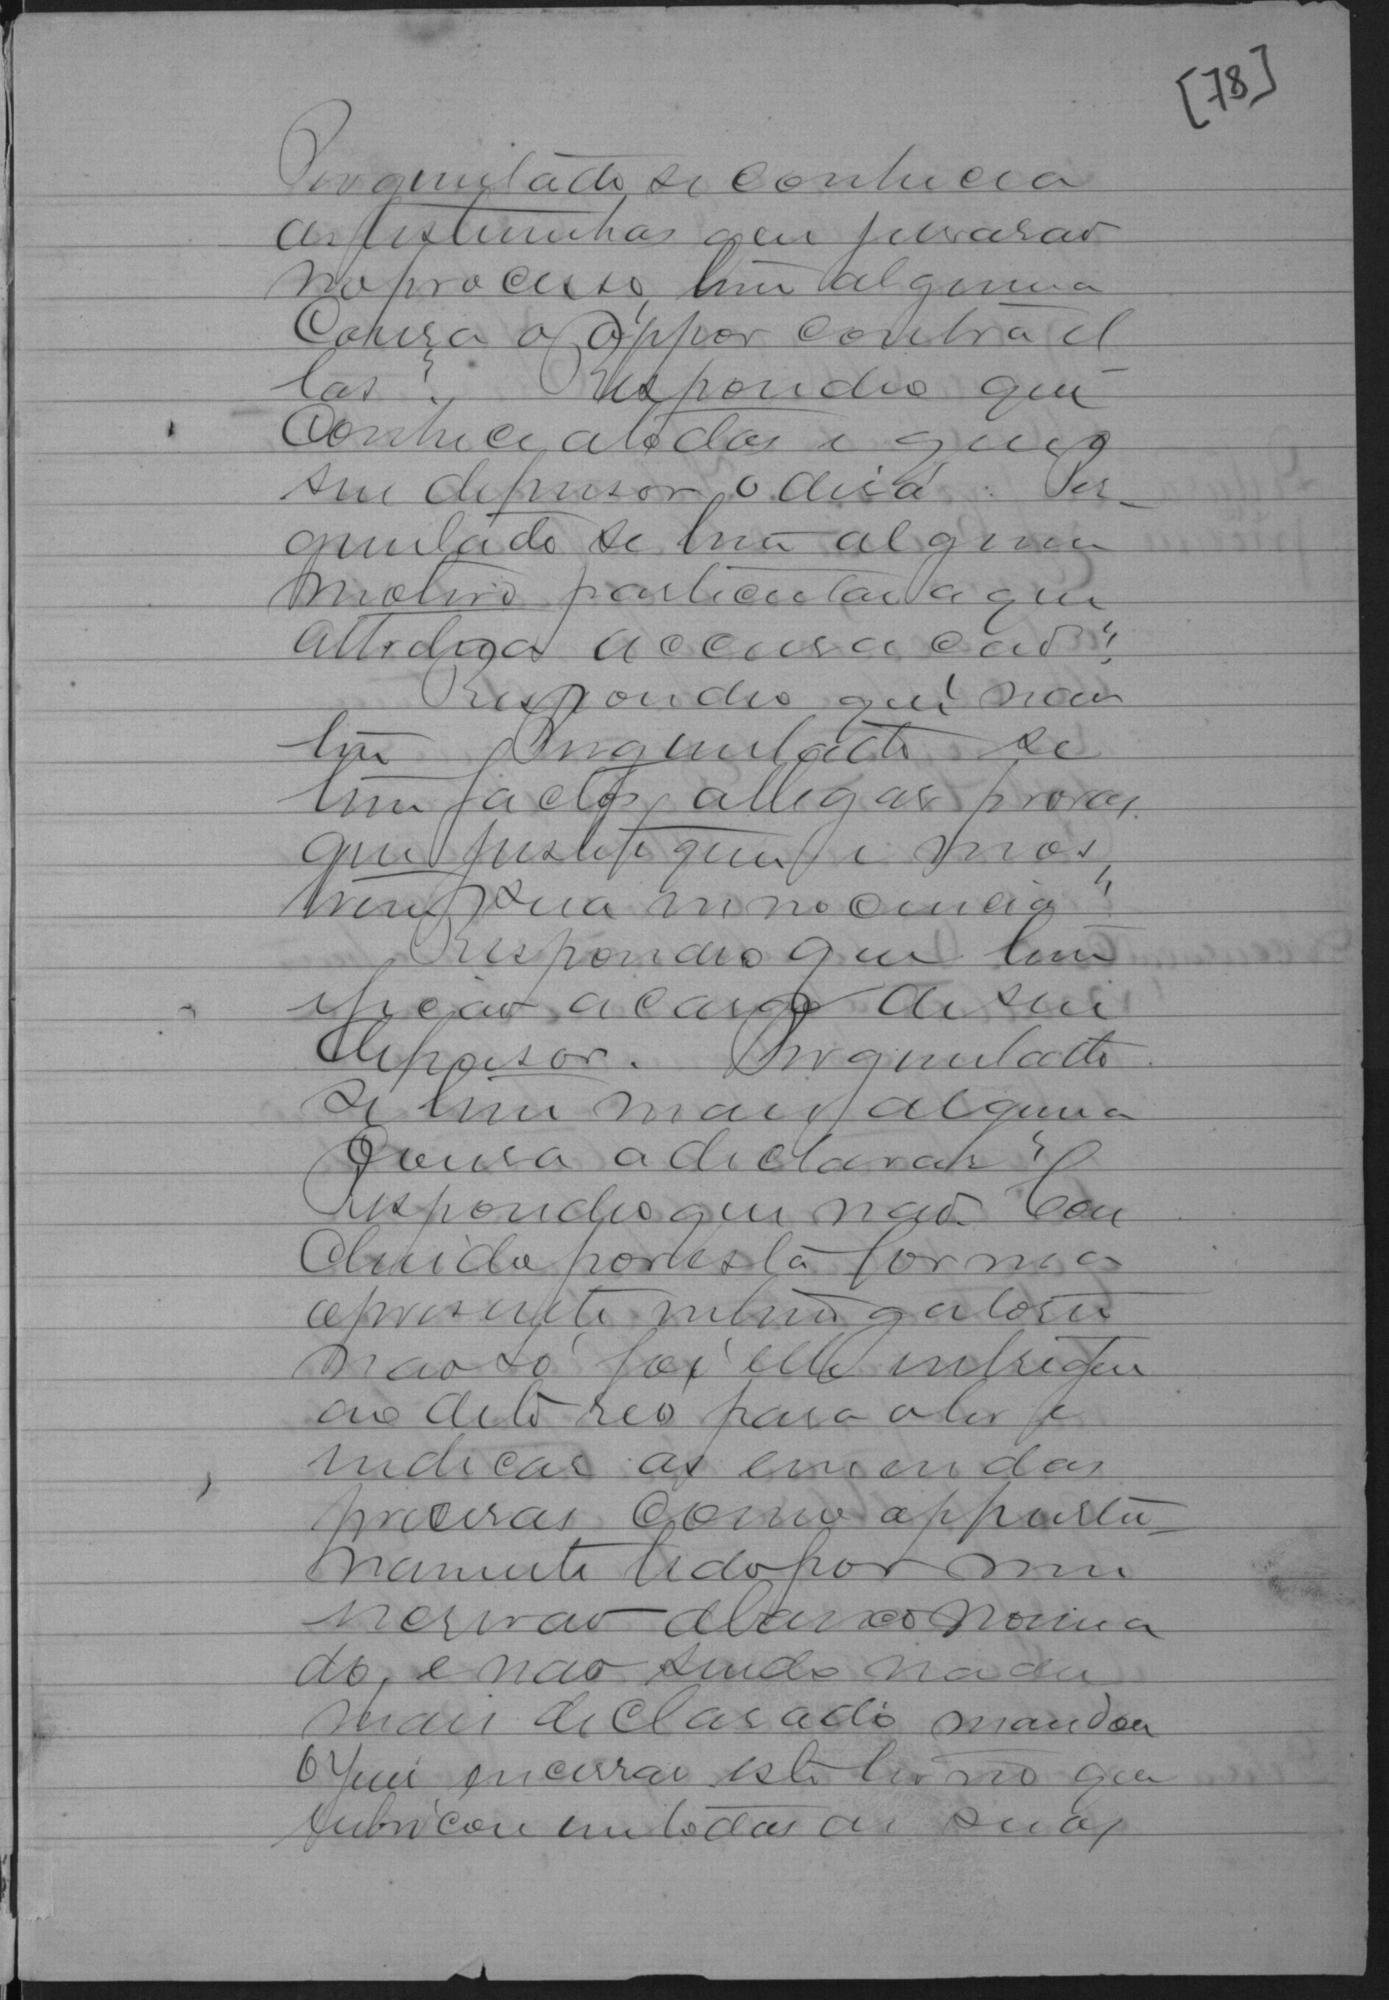 [78]
Perguntado, se conhecia
as testemunhas que jurarão
no processo, tem alguma
Cousa a oppor contra el
las? Respondeo que
Conhecia todas e que o
seu defensor o dirá. Per-
guntado se tem algum
motivo particular a que
attribua accusacão?
Respondeo que não
tem Perguntado se
tem factos, allegar provas
que justifiquem e mos
trem sua innocencia?
Respondeo que tem
e ficão a cargo de seu
defensor. Perguntado
se tem mais alguma
Cousa a declarar?
Respondeo que não. Con
cluido por esta forma
o presente interrogatorio
não só foi elle entregue
ao dito reo para o ler e
indicar as emendas
precisas como oppurtu-
namente lido por mim
escrivão abaixo nomea
do, e não sendo nada
mais declarado mandou
o Juiz encerrar este termo que
rubricou em todas as suas